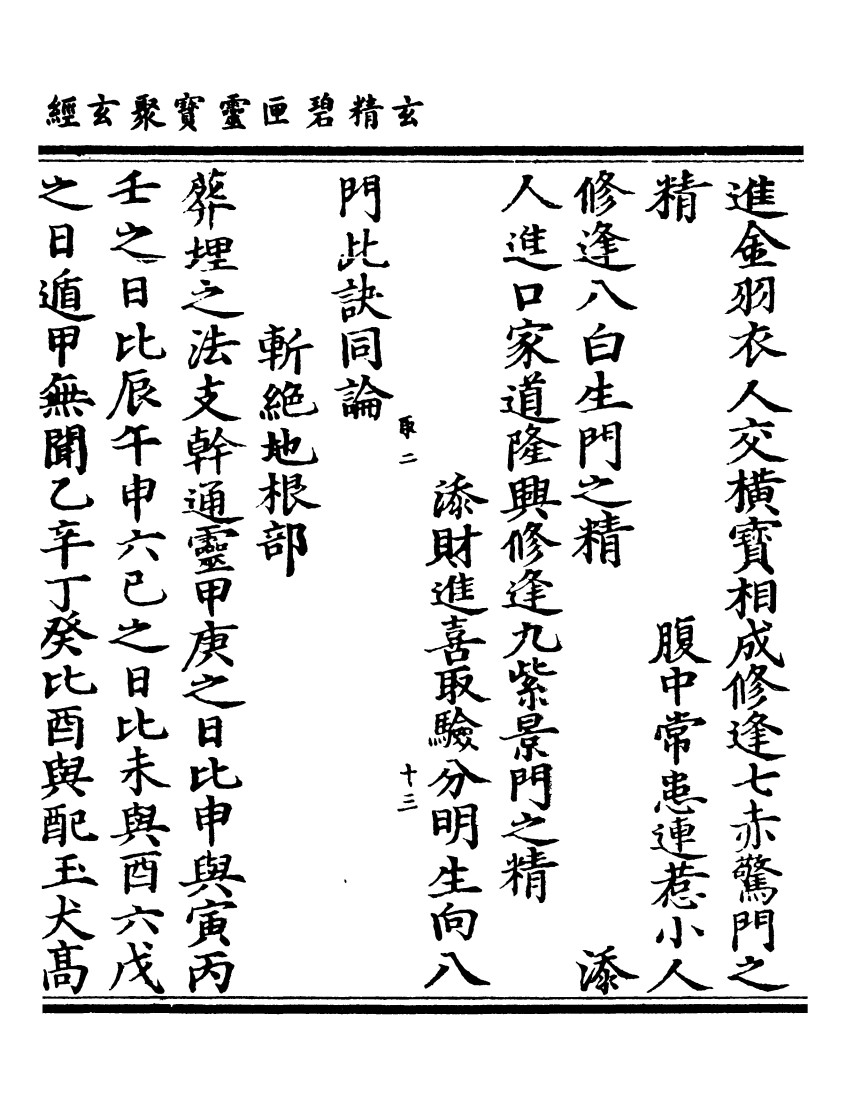 玄精碧匣靈寶聚玄經
進金羽衣人交橫寶相成修逢七赤驚門之
精　腹中常患連惹小人
修逢八白生門之精　添
人進口家道隆興修逢九紫景門之精
添財進喜取驗分明生向八
取二　十三
門此訣同論
斬絶地根部
葬埋之法支幹通靈甲庚之日比申與寅丙
壬之日比辰午申六己之日比未與酉六戊
之日遁甲無聞乙辛丁癸比酉與配玉犬高